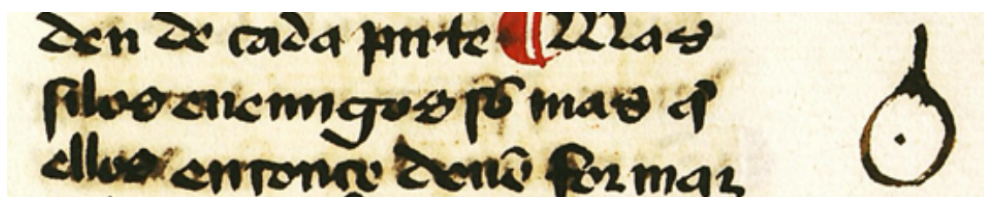 den de cada parte ¶ Mas
silos enemigos sõ mas q̃
ellos entonce deuẽ formar